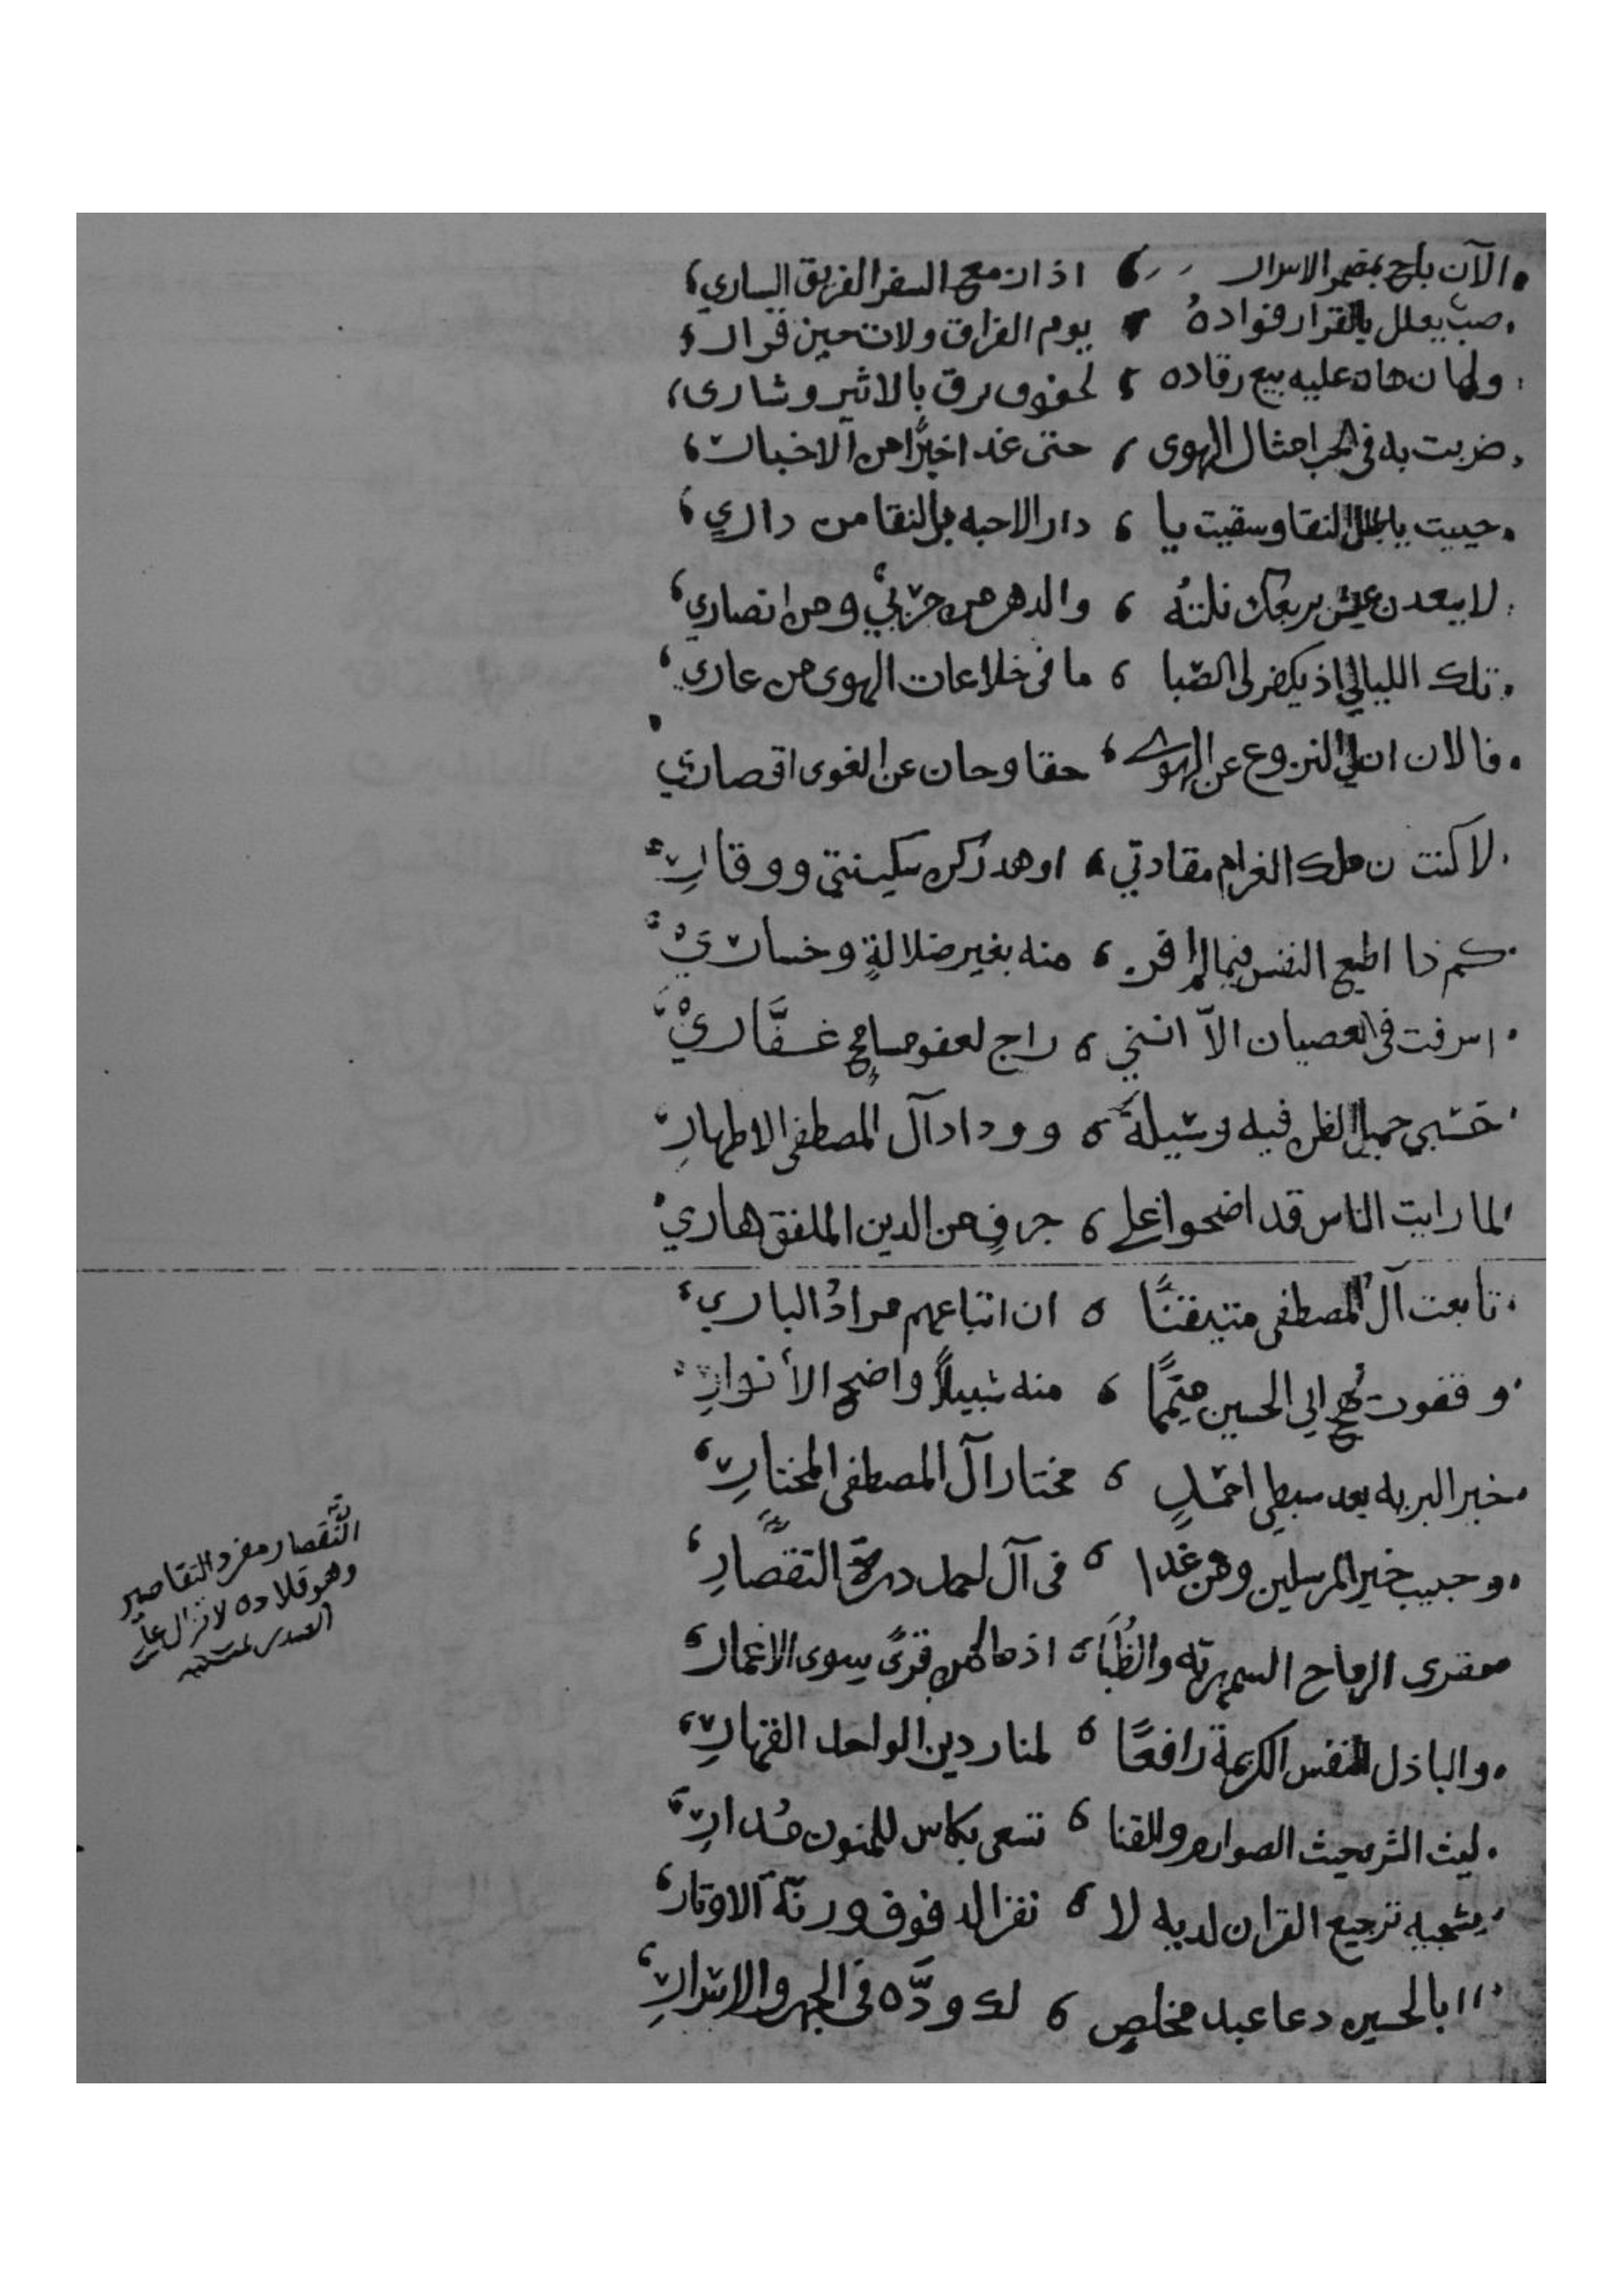 الآن باح بمضمر الاسرار ، اذ ازمع السفر الفريق الساري
صب يعلل بالقرار فواده ، يوم الفراق ولات حين قرار
ولهان هان عليه بيع رقاده ، لخفوق برق بالاثير وشارى
ضربت به في الحب امثال الهوى ، حتى غدا خبرًا من الاخبار
حييت يا طلل النقا وسقيت يا ، دار الاحبه بالنقا من داري
لا يبعدن عيش بربعك نلته ، والدهر من حزبي ومن انصاري
تلك الليالي اذ يكفر لي الصبا ، ما في خلاعات الهوى من عاري
فالان ان لي النزوع عن الهوى ، حقا وحان عن الغوى اقصاري
لا كنت ان ملك الغرام مقادتي ، او هد ركن سكينتي ووقار
كم ذا اطيع النفس فيما لم افز ، منه بغير ضلالةٍ وخساري
اسرفت في العصيان الاّ انني ، راج لعفو مسامحٍ غفَّاري
حسبي جميل الظن فيه وسيلةً ، ووداد آل المصطفى الاطهارِ
لما رايت الناس قد اضحوا على ، جرفٍ من الدين الملفق هاري
تابعت آل المصطفى متيقنًا ، ان اتباعهم مرادُ الباري
وقفوت نهج ابي الحسين ميممًا ، منه سبيلاً واضح الأنوارِ
خير البريه بعد سبطي احمدٍ ، مختار آل المصطفى المختارِ
وحبيب خير المرسلين ومن غدا ، في آل احمد درة التقصَّارِ
مقرى الرماح السمهرية والظُّبَا ، اذ ما لهن قرًى سوى الاغمار
والباذل النفس الكريمة رافعًا ، لمنار دين الواحد القهارِ
ليث الشرى حيث الصوارم والقنا ، تسعى بكاس للمنون مُدارِ
يشجيه ترجيع القران لديه لا ، نغز الدفوف ورنّة الاوتار
ابالحسين دعا عبد مخلصٍ ، لك ودَّه في الجهر والاسرارِ
التَّقصار مفرد التقاصير
وهو قلادة لا تزال على